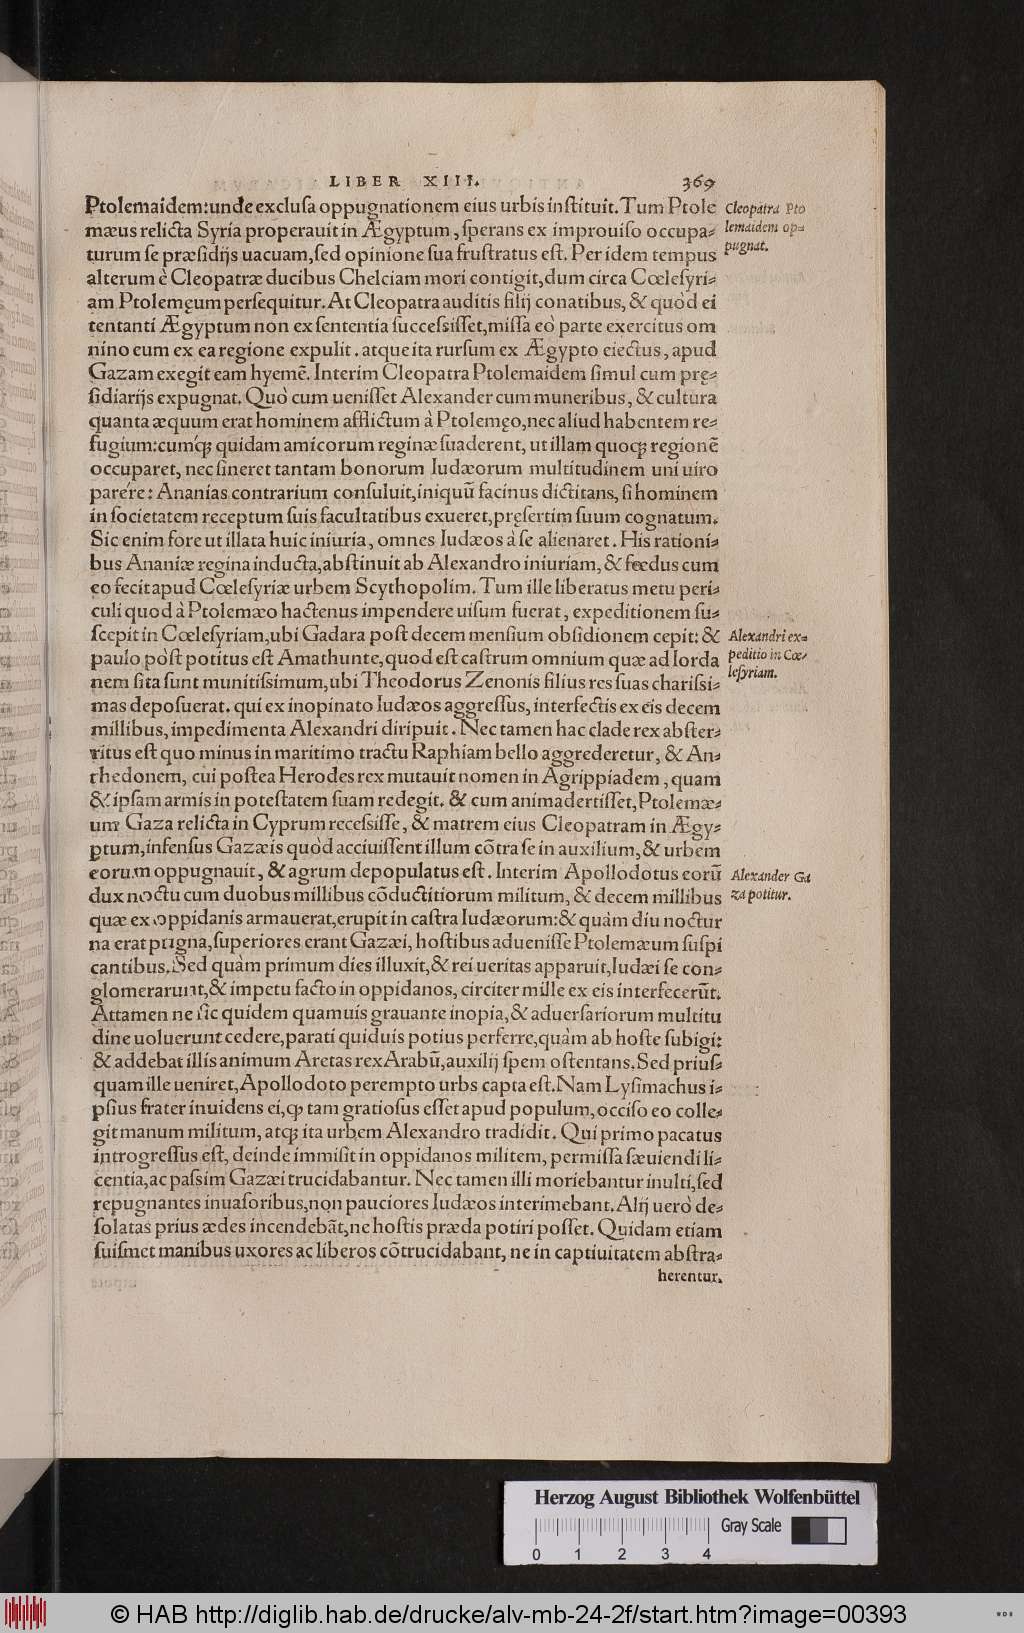 LIBER XIII. 369
Ptolemaidem: unde exclusa oppugnationem eius urbis instituit. Tum Ptole
mæus relicta Syria properauit in Ægyptum, sperans ex improuiso occupa-
turum se præsidijs uacuam, sed opinione sua frustratus est. Per idem tempus
alterum è Cleopatræ ducibus Chelciam mori contigit, dum circa Cœlesyri-
am Ptolemęum persequitur. At Cleopatra auditis filij conatibus, & quòd ei
tentanti Ægyptum non ex sententia successisset, missa eò parte exercitus om
nino eum ex ea regione expulit. atque ita rursum ex Ægypto eiectus, apud
Gazam exegit eam hyemē. Interim Cleopatra Ptolemaidem simul cum prę-
sidiarijs expugnat. Quò cum uenisset Alexander cum muneribus, & cultura
quanta æquum erat hominem afflictum à Ptolemęo, nec aliud habentem re-
fugium: cumq́; quidam amicorum reginæ suaderent, ut illam quoq; regionē
occuparet, nec sineret tantam bonorum Iudæorum multitudinem uni uiro
parére: Ananias contrarium consuluit, iniquū facinus dictitans, si hominem
in societatem receptum suis facultatibus exueret, pręsertim suum cognatum.
Sic enim fore ut illata huic iniuria, omnes Iudæos à se alienaret. His rationi-
bus Ananiæ regina inducta, abstinuit ab Alexandro iniuriam, & fœdus cum
eo fecit apud Cœlesyriæ urbem Scythopolim. Tum ille liberatus metu peri-
culi quod à Ptolemæo hactenus impendere uisum fuerat, expeditionem su-
scepit in Cœlesyriam, ubi Gadara post decem mensium obsidionem cepit: &
paulo pòst potitus est Amathunte, quod est castrum omnium quæ ad Iorda
nem sita sunt munitissimum, ubi Theodorus Zenonis filius res suas charissi-
mas deposuerat. qui ex inopinato Iudæos aggressus, interfectis ex eis decem
millibus, impedimenta Alexandri diripuit. Nec tamen hac clade rex abster-
ritus est quo minus in maritimo tractu Raphiam bello aggrederetur, & An-
thedonem, cui postea Herodes rex mutauit nomen in Agrippiadem, quam
& ipsam armis in potestatem suam redegit. & cum animadertisset, Ptolemæ-
um Gaza relicta in Cyprum recessisse, & matrem eius Cleopatram in Ægy-
ptum, infensus Gazæis quòd acciuissent illum cōtra se in auxilium, & urbem
eorum oppugnauit, & agrum depopulatus est. Interim Apollodotus eorū
dux noctu cum duobus millibus cōductitiorum militum, & decem millibus
quæ ex oppidanis armauerat, erupit in castra Iudæorum: & quàm diu noctur
na erat pugna, superiores erant Gazæi, hostibus aduenisse Ptolemæum suspi
cantibus. Sed quàm primum dies illuxit, & rei ueritas apparuit, Iudæi se con-
glomerarunt, & impetu facto in oppidanos, circiter mille ex eis interfecerūt.
Attamen ne sic quidem quamuis grauante inopia, & aduersariorum multitu
dine uoluerunt cedere, parati quiduis potius perferre, quàm ab hoste subigi:
& addebat illis animum Aretas rex Arabū, auxilij spem ostentans. Sed prius-
quam ille ueniret, Apollodoto perempto urbs capta est. Nam Lysimachus i-
psius frater inuidens ei, ꝙ tam gratiosus esset apud populum, occiso eo colle-
git manum militum, atq; ita urbem Alexandro tradidit. Qui primo pacatus
introgressus est, deinde immisit in oppidanos militem, permissa sæuiendi li-
centia, ac passim Gazæi trucidabantur. Nec tamen illi moriebantur inulti, sed
repugnantes inuasoribus, non pauciores Iudæos interimebant. Alij uerò de-
solatas prius ædes incendebāt, ne hostis præda potiri posset. Quidam etiam
suismet manibus uxores ac liberos cōtrucidabant, ne in captiuitatem abstra-
herentur.
Cleopatra Pto
lemaidem op-
pugnat.
Alexandri ex-
peditio in Cœ-
lesyriam.
Alexander Ga
za potitur.
Herzog August Bibliothek Wolfenbüttel
Gray Scale
0 1 2 3 4
© HAB http://diglib.hab.de/drucke/alv-mb-24-2f/start.htm?image=00393